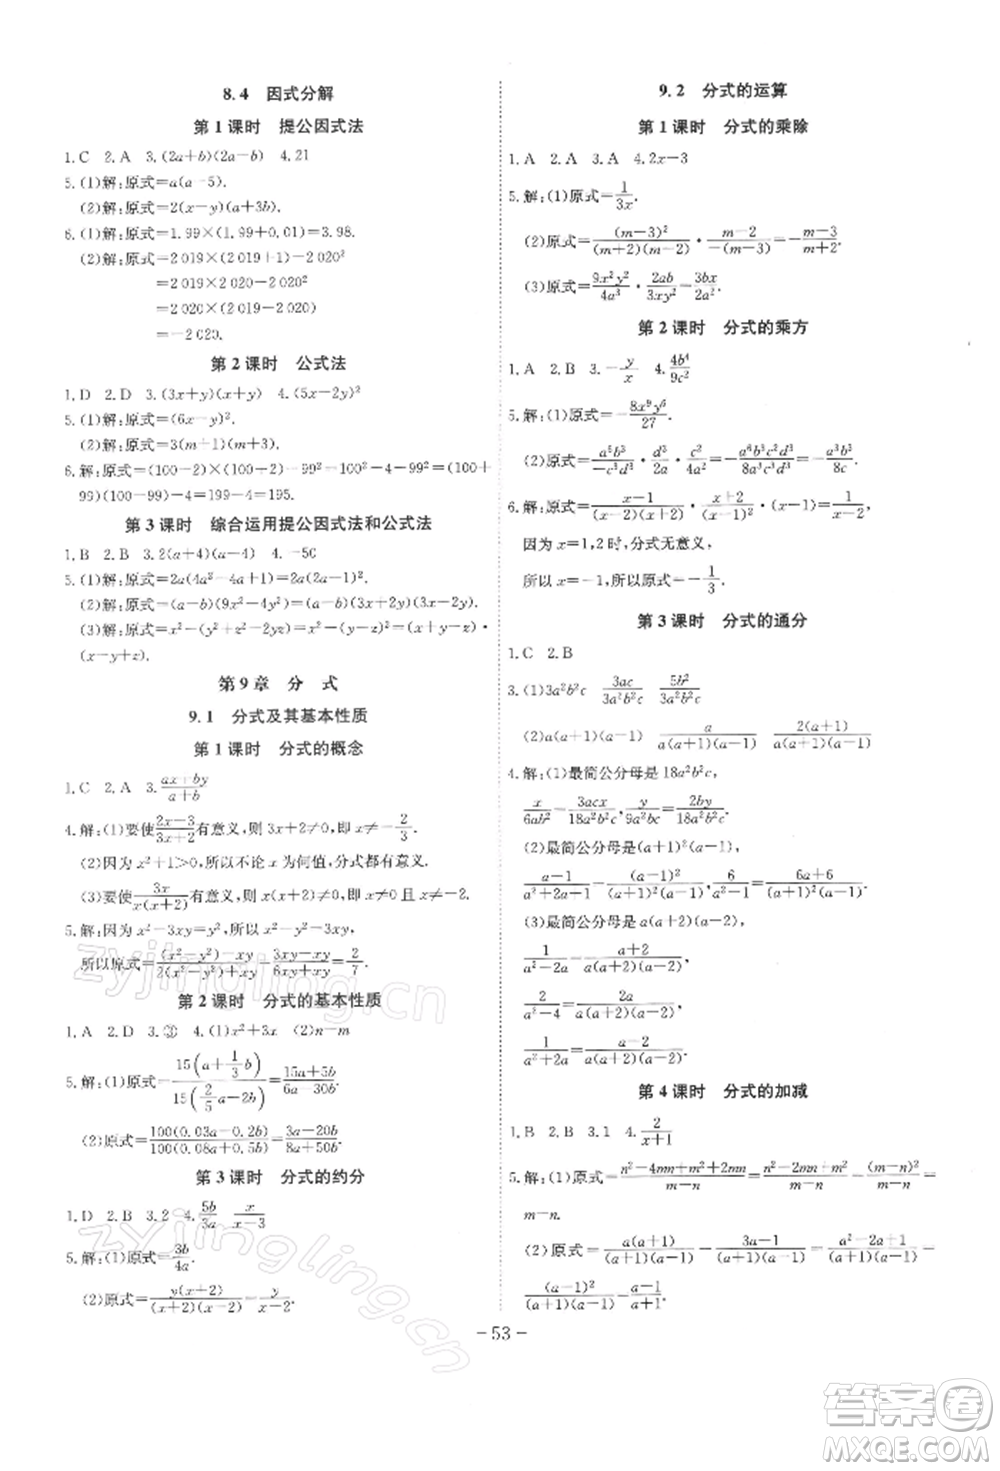 8.4 因式分解
第1课时 提公因式法
1.C 2.A 3.(2a+b)(2a-b) 4.21
5.(1)解:原式=a(a-5).
(2)解:原式=2(x-y)(a+3b).
6.(1)解:原式=1.99×(1.99+0.01)=3.98.
(2)解:原式=2 019×(2 019+1)-2 020²
=2 019×2 020-2 020²
=2 020×(2 019-2 020)
=-2 020.
第2课时 公式法
1.D 2.D 3.(3x+y)(x+y) 4.(5x-2y)²
5.(1)解:原式=(6x-y)².
(2)解:原式=3(m-1)(m+3).
6.解:原式=(100-2)×(100+2)-99²=100²-4-99²=(100+
99)(100-99)-4=199-4=195.
第3课时 综合运用提公因式法和公式法
1.B 2.B 3.2(a+4)(a-4) 4.-50
5.(1)解:原式=2a(4a²-4a+1)=2a(2a-1)².
(2)解:原式=(a-b)(9x²-4y²)=(a-b)(3x+2y)(3x-2y).
(3)解:原式=x²-(y²+z²-2yz)=x²-(y-z)²=(x+y-z)·
(x-y+z).
第9章 分 式
9.1 分式及其基本性质
第1课时 分式的概念
1.C 2.A 3.(ax+by)/(a+b)
4.解:(1)要使(2x-3)/(3x+2)有意义,则3x+2≠0,即x≠-2/3.
(2)因为x²+1>0,所以不论x为何值,分式都有意义.
(3)要使3x/(x(x+2))有意义,则x(x+2)≠0,即x≠0且x≠-2.
5.解:因为x²-3xy=y²,所以x²-y²=3xy,
所以原式=((x²-y²)-xy)/(2(x²-y²)+xy)=(3xy-xy)/(6xy+xy)=2/7.
第2课时 分式的基本性质
1.A 2.D 3.③ 4.(1)x²+3x (2)n-m
5.解:(1)原式=15(a+1/3b)/15(2/5a-2b)=(15a+5b)/(6a-30b).
(2)原式=100(0.03a-0.2b)/100(0.08a+0.5b)=(3a-20b)/(8a+50b).
第3课时 分式的约分
1.D 2.B 3.2 4.5b/3a x/(x-3)
5.解:(1)原式=3b/4a.
(2)原式=y(x+2)/((x+2)(x-2))=y/(x-2).
9.2 分式的运算
第1课时 分式的乘除
1.A 2.A 3.A 4.2x-3
5.解:(1)原式=1/3x.
(2)原式=(m-3)²/((m+2)(m-2))·(m-2)/(-(m-3))=-(m-3)/(m+2).
(3)原式=9x²y²/4a³·2ab/3xy²=3bx/2a².
第2课时 分式的乘方
1.A 2.B 3.-y/x 4.4b⁴/9c²
5.解:(1)原式=-8x⁹y⁶/27.
(2)原式=a⁶b³/(-c³d³)·d³/2a·c²/4a²=-a⁶b³c²d³/8a³c³d³=-a³b³/8c.
6.解:原式=(x-1)/((x-2)(x+2))·(x+2)/(x-1)²·(x-1)=1/(x-2),
因为x=1,2时,分式无意义,
所以x=-1,所以原式=-1/3.
第3课时 分式的通分
1.C 2.B
3.(1)3a²b²c 3ac/3a²b²c 5b²/3a²b²c
(2)a(a+1)(a-1) a/(a(a+1)(a-1)) 2(a+1)/(a(a+1)(a-1))
4.解:(1)最简公分母是18a²b²c,
x/6ab²=3acx/18a²b²c,y/9a²bc=2by/18a²b²c.
(2)最简公分母是(a+1)²(a-1),
(a-1)/(a²+2a+1)=(a-1)²/((a+1)²(a-1)),6/(a²-1)=(6a+6)/((a+1)²(a-1)).
(3)最简公分母是a(a+2)(a-2),
1/(a²-2a)=(a+2)/(a(a+2)(a-2)),
a/(a²-4)=2a/(a(a+2)(a-2)),
1/(a²+2a)=(a-2)/(a(a+2)(a-2)).
第4课时 分式的加减
1.B 2.B 3.1 4.2/(x+1)
5.解:(1)原式=(n²-4mn+m²+2mn)/(m-n)=(n²-2mn+m²)/(m-n)=(m-n)²/(m-n)
=m-n.
(2)原式=a(a+1)/((a+1)(a-1))-(3a-1)/((a+1)(a-1))=(a²-2a+1)/((a+1)(a-1))=
(a-1)²/((a+1)(a-1))=(a-1)/(a+1).
- 53 -
zyjingling.cn
zyjingling.cn
答案圈
MXQE.COM